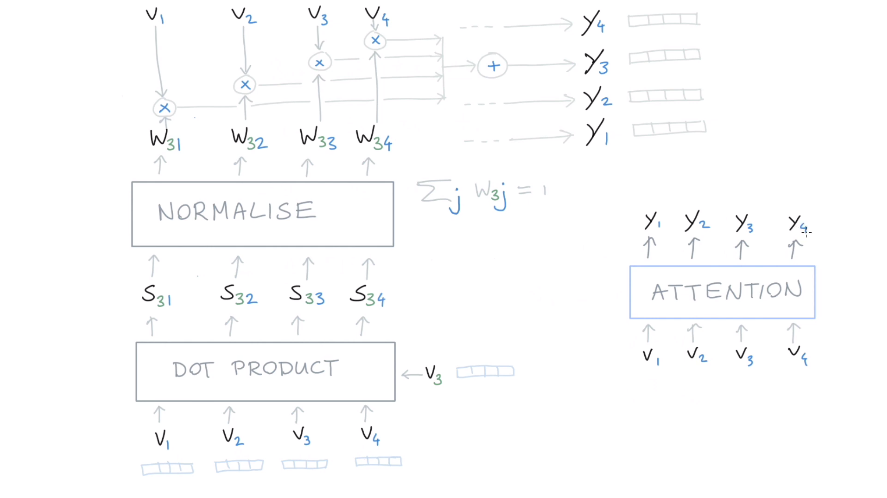 V1 V2 V3 V4
x x x x
+
Y4
Y3
Y2
Y1
W31 W32 W33 W34
NORMALISE
∑j W3j = 1
S31 S32 S33 S34
DOT PRODUCT
V3
V1 V2 V3 V4
Y1 Y2 Y3 Y4
ATTENTION
V1 V2 V3 V4